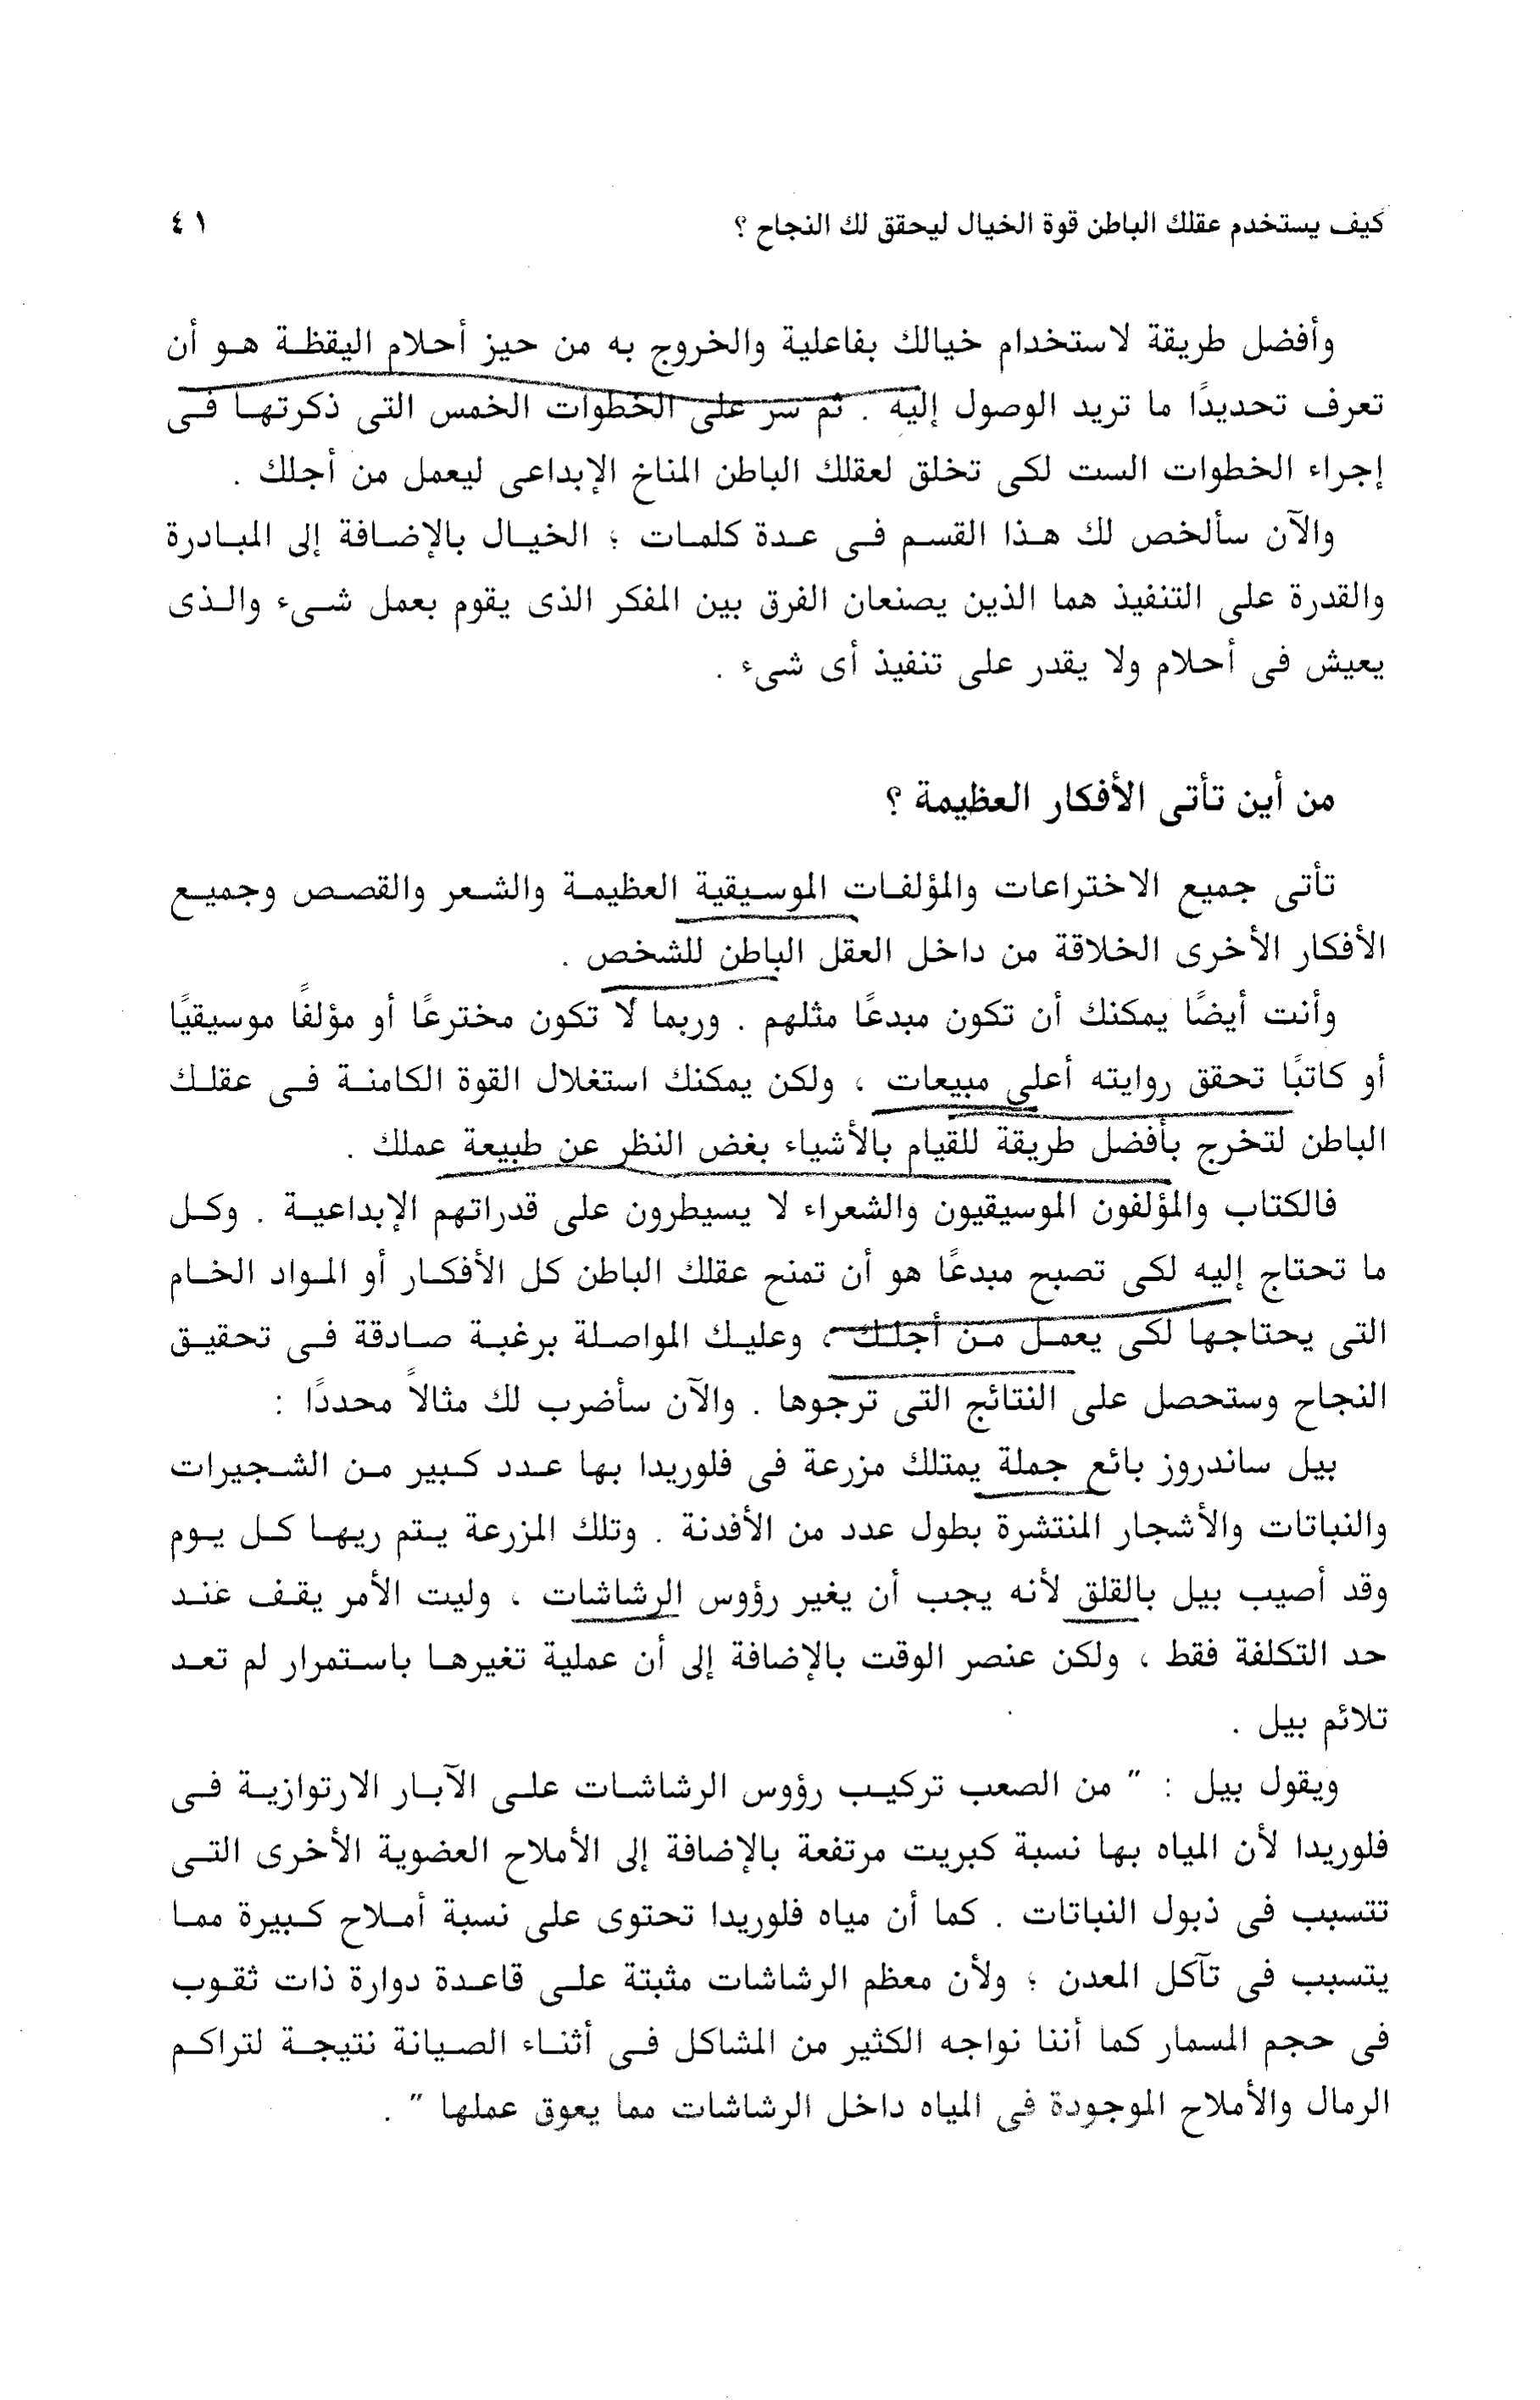 كيف يستخدم عقلك الباطن قوة الخيال ليحقق لك النجاح ؟ ٤١
وأفضل طريقة لاستخدام خيالك بفاعلية والخروج به من حيز أحلام اليقظة هو أن
تعرف تحديدًا ما تريد الوصول إليه . ثم سر على الخطوات الخمس التى ذكرتها فى
إجراء الخطوات الست لكى تخلق لعقلك الباطن المناخ الإبداعى ليعمل من أجلك .
والآن سألخص لك هذا القسم فى عدة كلمات ؛ الخيال بالإضافة إلى المبادرة
والقدرة على التنفيذ هما الذين يصنعان الفرق بين المفكر الذى يقوم بعمل شىء والذى
يعيش فى أحلام ولا يقدر على تنفيذ أى شىء .
من أين تأتى الأفكار العظيمة ؟
تأتى جميع الاختراعات والمؤلفات الموسيقية العظيمة والشعر والقصص وجميع
الأفكار الأخرى الخلاقة من داخل العقل الباطن للشخص .
وأنت أيضًا يمكنك أن تكون مبدعًا مثلهم . وربما لا تكون مخترعًا أو مؤلفًا موسيقيًا
أو كاتبًا تحقق روايته أعلى مبيعات ، ولكن يمكنك استغلال القوة الكامنة فى عقلك
الباطن لتخرج بأفضل طريقة للقيام بالأشياء بغض النظر عن طبيعة عملك .
فالكتاب والمؤلفون الموسيقيون والشعراء لا يسيطرون على قدراتهم الإبداعية . وكل
ما تحتاج إليه لكى تصبح مبدعًا هو أن تمنح عقلك الباطن كل الأفكار أو المواد الخام
التى يحتاجها لكى يعمل من أجلك ، وعليك المواصلة برغبة صادقة فى تحقيق
النجاح وستحصل على النتائج التى ترجوها . والآن سأضرب لك مثالاً محددًا :
بيل ساندروز بائع جملة يمتلك مزرعة فى فلوريدا بها عدد كبير من الشجيرات
والنباتات والأشجار المنتشرة بطول عدد من الأفدنة . وتلك المزرعة يتم ريها كل يوم
وقد أصيب بيل بالقلق لأنه يجب أن يغير رؤوس الرشاشات ، وليت الأمر يقف عند
حد التكلفة فقط ، ولكن عنصر الوقت بالإضافة إلى أن عملية تغيرها باستمرار لم تعد
تلائم بيل .
ويقول بيل : " من الصعب تركيب رؤوس الرشاشات على الآبار الارتوازية فى
فلوريدا لأن المياه بها نسبة كبريت مرتفعة بالإضافة إلى الأملاح العضوية الأخرى التى
تتسبب فى ذبول النباتات . كما أن مياه فلوريدا تحتوى على نسبة أملاح كبيرة مما
يتسبب فى تآكل المعدن ؛ ولأن معظم الرشاشات مثبتة على قاعدة دوارة ذات ثقوب
فى حجم المسمار كما أننا نواجه الكثير من المشاكل فى أثناء الصيانة نتيجة لتراكم
الرمال والأملاح الموجودة فى المياه داخل الرشاشات مما يعوق عملها " .